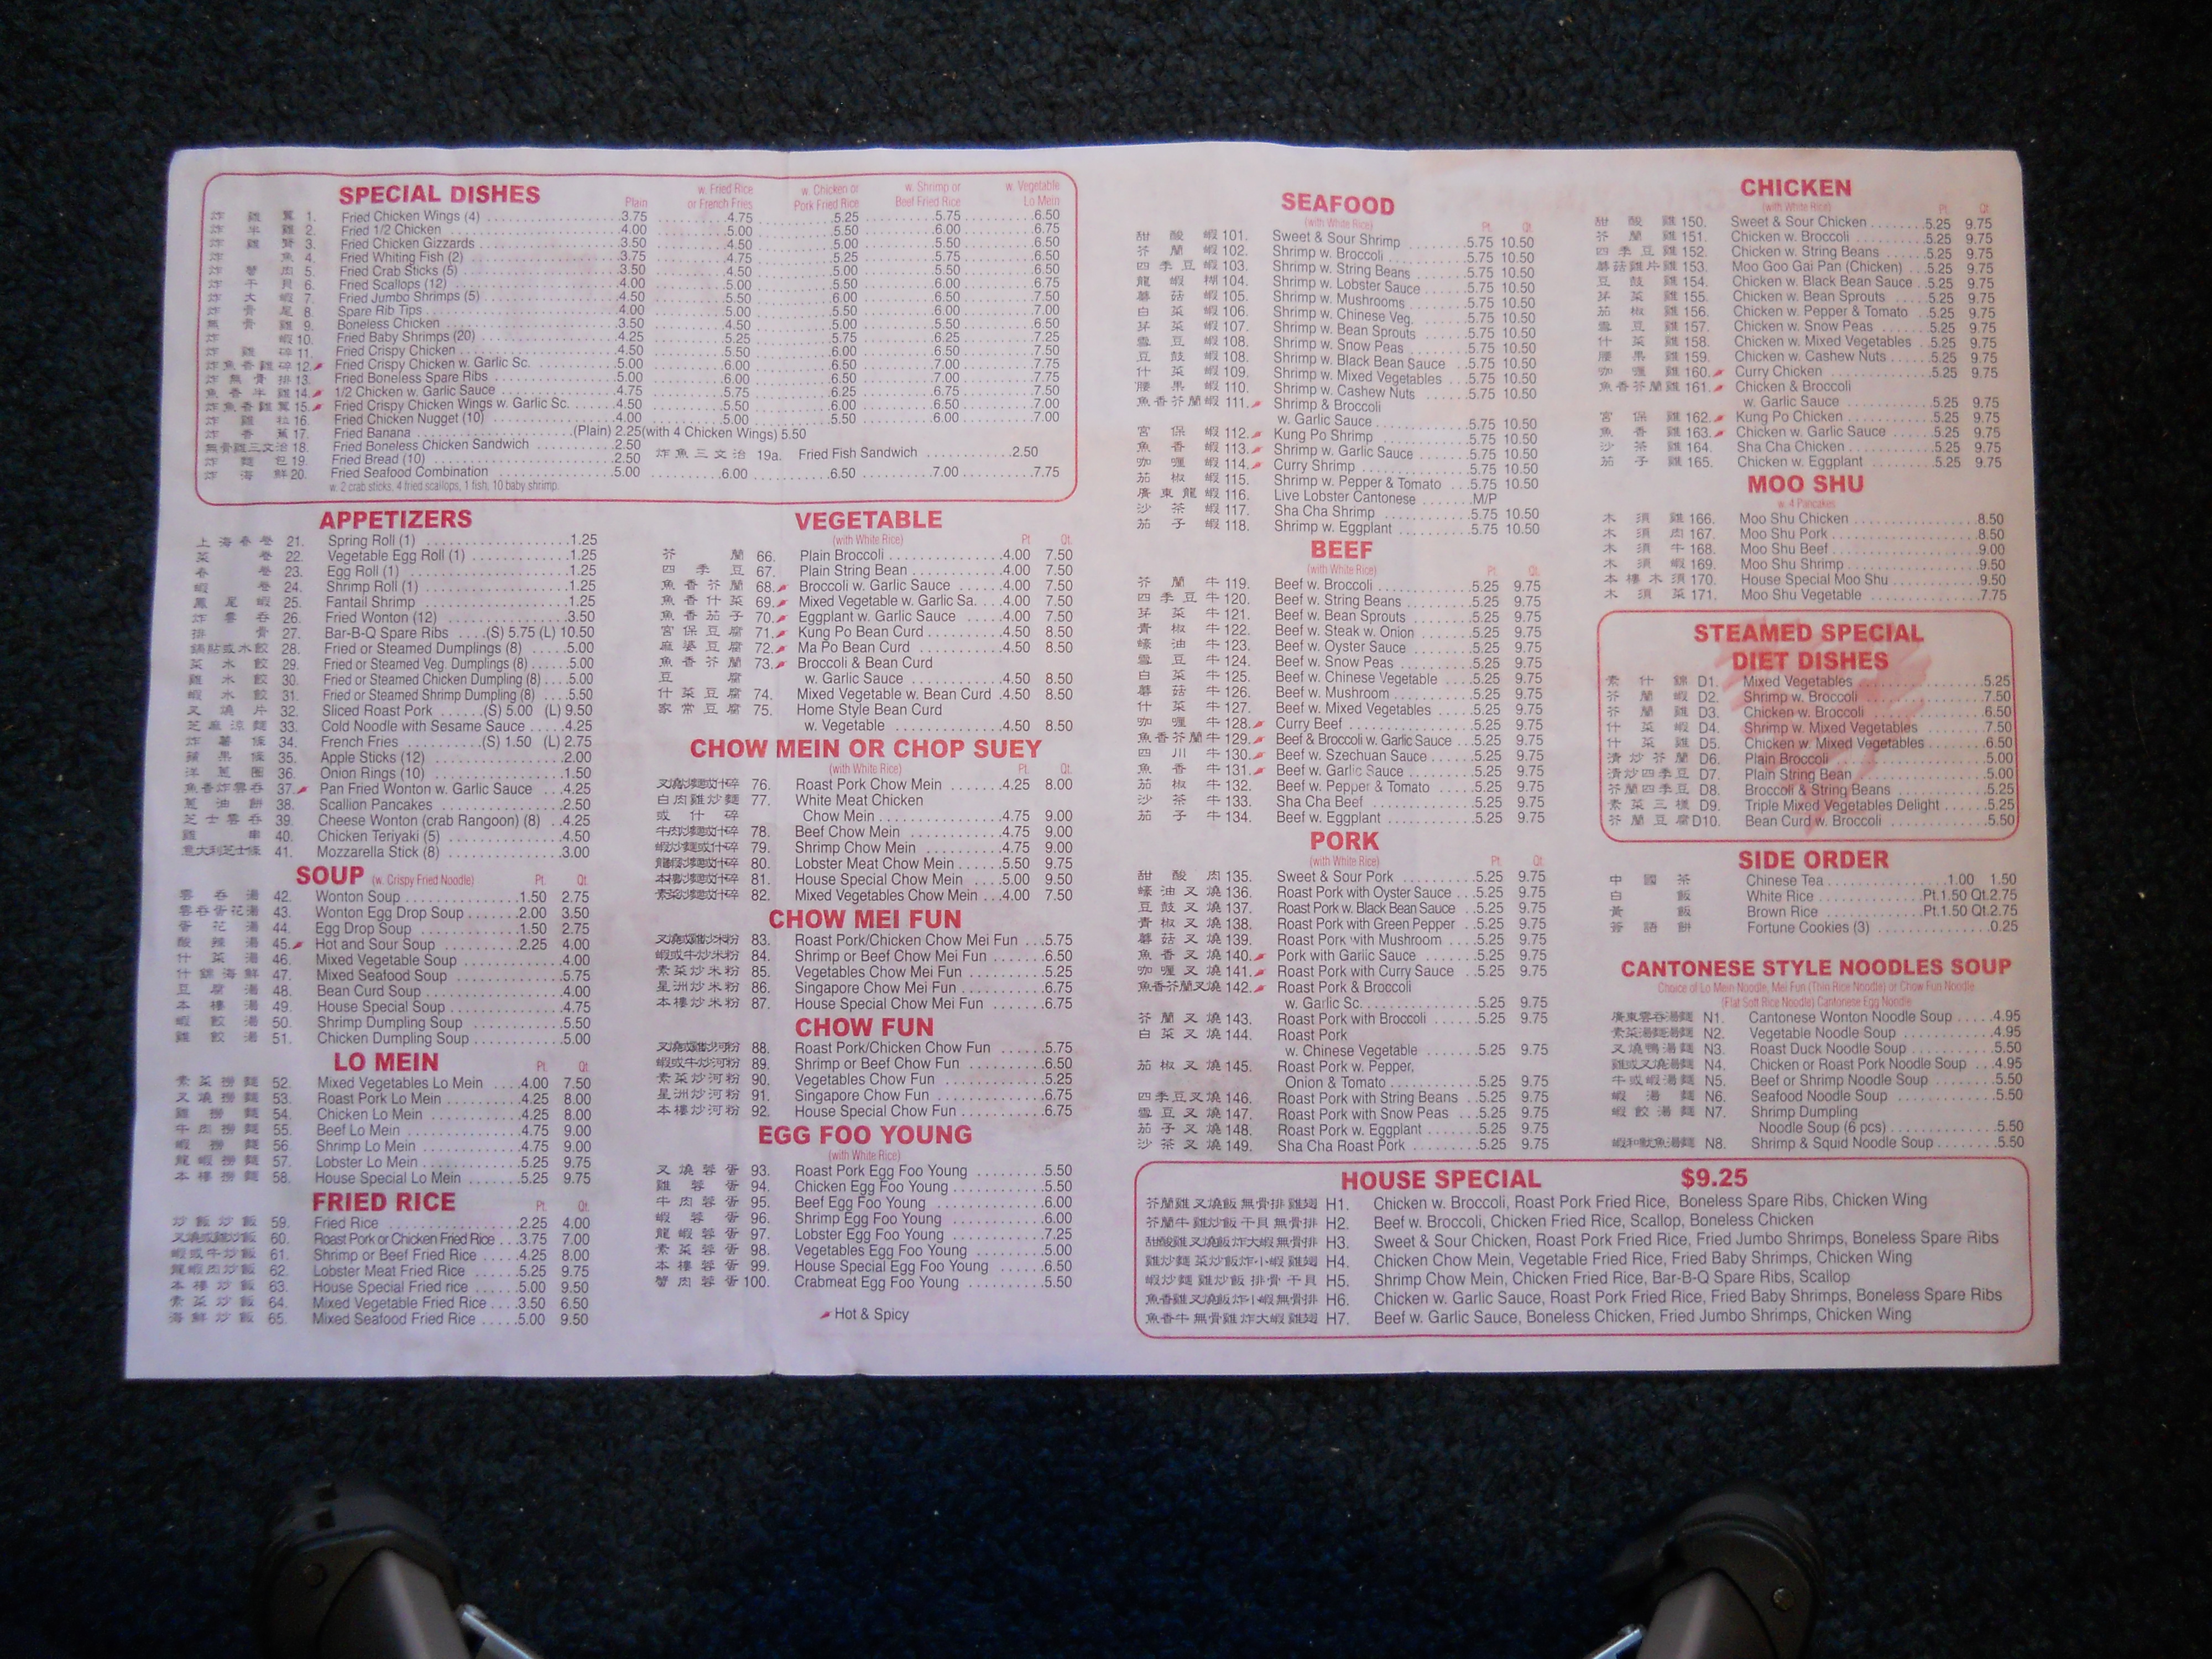 SPECIAL DISHES
Plain
w. Fried Rice or French Fries
w. Chicken or Pork Fried Rice
w. Shrimp or Beef Fried Rice
w. Vegetable Lo Mein
炸雞翼 1. Fried Chicken Wings (4) 3.75 4.75 5.25 5.75 6.50
炸半雞 2. Fried 1/2 Chicken 4.00 5.00 5.50 6.00 6.75
炸雞腎 3. Fried Chicken Gizzards 3.50 4.50 5.00 5.50 6.50
炸魚 4. Fried Whiting Fish (2) 3.75 4.75 5.25 5.75 6.50
炸蟹肉 5. Fried Crab Sticks (5) 3.50 4.50 5.00 5.50 6.50
炸干貝 6. Fried Scallops (12) 4.00 5.00 5.50 6.00 6.75
炸大蝦 7. Fried Jumbo Shrimps (5) 4.50 5.50 6.00 6.50 7.50
炸骨尾 8. Spare Rib Tips 4.00 5.00 5.50 6.00 7.00
無骨雞 9. Boneless Chicken 3.50 4.50 5.00 5.50 6.50
炸蝦 10. Fried Baby Shrimps (20) 4.25 5.25 5.75 6.25 7.25
炸雞碎 11. Fried Crispy Chicken 4.50 5.50 6.00 6.50 7.50
炸魚香雞碎 12. Fried Crispy Chicken w. Garlic Sc. 5.00 6.00 6.50 7.00 7.75
炸無骨排 13. Fried Boneless Spare Ribs 5.00 6.00 6.50 7.00 7.75
魚香半雞 14. 1/2 Chicken w. Garlic Sauce 4.75 5.75 6.25 6.75 7.50
炸魚香雞翼 15. Fried Crispy Chicken Wings w. Garlic Sc. 4.50 5.50 6.00 6.50 7.00
炸雞粒 16. Fried Chicken Nugget (10) 4.00 5.00 5.50 6.00 7.00
炸香蕉 17. Fried Banana (Plain) 2.25 (with 4 Chicken Wings) 5.50
無骨雞三文治 18. Fried Boneless Chicken Sandwich 2.50
炸麵包 19. Fried Bread (10) 2.50 炸魚三文治 19a. Fried Fish Sandwich 2.50
炸海鮮 20. Fried Seafood Combination 5.00 6.00 6.50 7.00 7.75
w. 2 crab sticks, 4 fried scallops, 1 fish, 10 baby shrimp.
APPETIZERS
上海春卷 21. Spring Roll (1) 1.25
菜卷 22. Vegetable Egg Roll (1) 1.25
春卷 23. Egg Roll (1) 1.25
蝦卷 24. Shrimp Roll (1) 1.25
鳳尾蝦 25. Fantail Shrimp 1.25
炸雲吞 26. Fried Wonton (12) 3.50
排骨 27. Bar-B-Q Spare Ribs (S) 5.75 (L) 10.50
鍋貼或水餃 28. Fried or Steamed Dumplings (8) 5.00
菜水餃 29. Fried or Steamed Veg. Dumplings (8) 5.00
雞水餃 30. Fried or Steamed Chicken Dumpling (8) 5.00
蝦水餃 31. Fried or Steamed Shrimp Dumpling (8) 5.50
叉燒片 32. Sliced Roast Pork (S) 5.00 (L) 9.50
芝麻涼麵 33. Cold Noodle with Sesame Sauce 4.25
炸薯條 34. French Fries (S) 1.50 (L) 2.75
蘋果條 35. Apple Sticks (12) 2.00
洋蔥圈 36. Onion Rings (10) 1.50
魚香炸雲吞 37. Pan Fried Wonton w. Garlic Sauce 4.25
蔥油餅 38. Scallion Pancakes 2.50
芝士雲吞 39. Cheese Wonton (crab Rangoon) (8) 4.25
雞串 40. Chicken Teriyaki (5) 4.50
意大利芝士條 41. Mozzarella Stick (8) 3.00
SOUP (w. Crispy Fried Noodle) Pt. Qt.
雲吞湯 42. Wonton Soup 1.50 2.75
雲吞蛋花湯 43. Wonton Egg Drop Soup 2.00 3.50
蛋花湯 44. Egg Drop Soup 1.50 2.75
酸辣湯 45. Hot and Sour Soup 2.25 4.00
什菜湯 46. Mixed Vegetable Soup 4.00
什錦海鮮 47. Mixed Seafood Soup 5.75
豆腐湯 48. Bean Curd Soup 4.00
本樓湯 49. House Special Soup 4.75
蝦餃湯 50. Shrimp Dumpling Soup 5.50
雞餃湯 51. Chicken Dumpling Soup 5.00
LO MEIN Pt. Qt.
素菜撈麵 52. Mixed Vegetables Lo Mein 4.00 7.50
叉燒撈麵 53. Roast Pork Lo Mein 4.25 8.00
雞撈麵 54. Chicken Lo Mein 4.25 8.00
牛肉撈麵 55. Beef Lo Mein 4.75 9.00
蝦撈麵 56. Shrimp Lo Mein 4.75 9.00
龍蝦撈麵 57. Lobster Lo Mein 5.25 9.75
本樓撈麵 58. House Special Lo Mein 5.25 9.75
FRIED RICE Pt. Qt.
炒飯炒飯 59. Fried Rice 2.25 4.00
叉燒或雞炒飯 60. Roast Pork or Chicken Fried Rice 3.75 7.00
蝦或牛炒飯 61. Shrimp or Beef Fried Rice 4.25 8.00
龍蝦肉炒飯 62. Lobster Meat Fried Rice 5.25 9.75
本樓炒飯 63. House Special Fried rice 5.00 9.50
素菜炒飯 64. Mixed Vegetable Fried Rice 3.50 6.50
海鮮炒飯 65. Mixed Seafood Fried Rice 5.00 9.50
VEGETABLE
(with White Rice) Pt. Qt.
芥蘭 66. Plain Broccoli 4.00 7.50
四季豆 67. Plain String Bean 4.00 7.50
魚香芥蘭 68. Broccoli w. Garlic Sauce 4.00 7.50
魚香什菜 69. Mixed Vegetable w. Garlic Sa. 4.00 7.50
魚香茄子 70. Eggplant w. Garlic Sauce 4.00 7.50
宮保豆腐 71. Kung Po Bean Curd 4.50 8.50
麻婆豆腐 72. Ma Po Bean Curd 4.50 8.50
魚香芥蘭 73. Broccoli & Bean Curd
豆腐 w. Garlic Sauce 4.50 8.50
什菜豆腐 74. Mixed Vegetable w. Bean Curd 4.50 8.50
家常豆腐 75. Home Style Bean Curd
w. Vegetable 4.50 8.50
CHOW MEIN OR CHOP SUEY
(with White Rice) Pt. Qt.
叉燒炒麵或什碎 76. Roast Pork Chow Mein 4.25 8.00
白肉雞炒麵 77. White Meat Chicken
或什碎 Chow Mein 4.75 9.00
牛肉炒麵或什碎 78. Beef Chow Mein 4.75 9.00
蝦炒麵或什碎 79. Shrimp Chow Mein 4.75 9.00
龍蝦炒麵或什碎 80. Lobster Meat Chow Mein 5.50 9.75
本樓炒麵或什碎 81. House Special Chow Mein 5.00 9.50
素菜炒麵或什碎 82. Mixed Vegetables Chow Mein 4.00 7.50
CHOW MEI FUN
叉燒或雞炒米粉 83. Roast Pork/Chicken Chow Mei Fun 5.75
蝦或牛炒米粉 84. Shrimp or Beef Chow Mei Fun 6.50
素菜炒米粉 85. Vegetables Chow Mei Fun 5.25
星洲炒米粉 86. Singapore Chow Mei Fun 6.75
本樓炒米粉 87. House Special Chow Mei Fun 6.75
CHOW FUN
叉燒或雞炒河粉 88. Roast Pork/Chicken Chow Fun 5.75
蝦或牛炒河粉 89. Shrimp or Beef Chow Fun 6.50
素菜炒河粉 90. Vegetables Chow Fun 5.25
星洲炒河粉 91. Singapore Chow Fun 6.75
本樓炒河粉 92. House Special Chow Fun 6.75
EGG FOO YOUNG
(with White Rice)
叉燒蓉蛋 93. Roast Pork Egg Foo Young 5.50
雞蓉蛋 94. Chicken Egg Foo Young 5.50
牛肉蓉蛋 95. Beef Egg Foo Young 6.00
蝦蓉蛋 96. Shrimp Egg Foo Young 6.00
龍蝦蓉蛋 97. Lobster Egg Foo Young 7.25
素菜蓉蛋 98. Vegetables Egg Foo Young 5.00
本樓蓉蛋 99. House Special Egg Foo Young 6.50
蟹肉蓉蛋 100. Crabmeat Egg Foo Young 5.50
Hot & Spicy
SEAFOOD
(with White Rice) Pt. Qt.
甜酸蝦 101. Sweet & Sour Shrimp 5.75 10.50
芥蘭蝦 102. Shrimp w. Broccoli 5.75 10.50
四季豆蝦 103. Shrimp w. String Beans 5.75 10.50
龍蝦糊 104. Shrimp w. Lobster Sauce 5.75 10.50
蘑菇蝦 105. Shrimp w. Mushrooms 5.75 10.50
白菜蝦 106. Shrimp w. Chinese Veg. 5.75 10.50
芽菜蝦 107. Shrimp w. Bean Sprouts 5.75 10.50
雪豆蝦 108. Shrimp w. Snow Peas 5.75 10.50
豆鼓蝦 108. Shrimp w. Black Bean Sauce 5.75 10.50
什菜蝦 109. Shrimp w. Mixed Vegetables 5.75 10.50
腰果蝦 110. Shrimp w. Cashew Nuts 5.75 10.50
魚香芥蘭蝦 111. Shrimp & Broccoli
w. Garlic Sauce 5.75 10.50
宮保蝦 112. Kung Po Shrimp 5.75 10.50
魚香蝦 113. Shrimp w. Garlic Sauce 5.75 10.50
咖喱蝦 114. Curry Shrimp 5.75 10.50
茄椒蝦 115. Shrimp w. Pepper & Tomato 5.75 10.50
廣東龍蝦 116. Live Lobster Cantonese M/P
沙茶蝦 117. Sha Cha Shrimp 5.75 10.50
茄子蝦 118. Shrimp w. Eggplant 5.75 10.50
BEEF
(with White Rice) Pt. Qt.
芥蘭牛 119. Beef w. Broccoli 5.25 9.75
四季豆牛 120. Beef w. String Beans 5.25 9.75
芽菜牛 121. Beef w. Bean Sprouts 5.25 9.75
青椒牛 122. Beef w. Steak w. Onion 5.25 9.75
蠔油牛 123. Beef w. Oyster Sauce 5.25 9.75
雪豆牛 124. Beef w. Snow Peas 5.25 9.75
白菜牛 125. Beef w. Chinese Vegetable 5.25 9.75
蘑菇牛 126. Beef w. Mushroom 5.25 9.75
什菜牛 127. Beef w. Mixed Vegetables 5.25 9.75
咖喱牛 128. Curry Beef 5.25 9.75
魚香芥蘭牛 129. Beef & Broccoli w. Garlic Sauce 5.25 9.75
四川牛 130. Beef w. Szechuan Sauce 5.25 9.75
魚香牛 131. Beef w. Garlic Sauce 5.25 9.75
茄椒牛 132. Beef w. Pepper & Tomato 5.25 9.75
沙茶牛 133. Sha Cha Beef 5.25 9.75
茄子牛 134. Beef w. Eggplant 5.25 9.75
PORK
(with White Rice) Pt. Qt.
甜酸肉 135. Sweet & Sour Pork 5.25 9.75
蠔油叉燒 136. Roast Pork with Oyster Sauce 5.25 9.75
豆鼓叉燒 137. Roast Pork w. Black Bean Sauce 5.25 9.75
青椒叉燒 138. Roast Pork with Green Pepper 5.25 9.75
蘑菇叉燒 139. Roast Pork with Mushroom 5.25 9.75
魚香叉燒 140. Pork with Garlic Sauce 5.25 9.75
咖喱叉燒 141. Roast Pork with Curry Sauce 5.25 9.75
魚香芥蘭叉燒 142. Roast Pork & Broccoli
w. Garlic Sc. 5.25 9.75
芥蘭叉燒 143. Roast Pork with Broccoli 5.25 9.75
白菜叉燒 144. Roast Pork
w. Chinese Vegetable 5.25 9.75
茄椒叉燒 145. Roast Pork w. Pepper,
Onion & Tomato 5.25 9.75
四季豆叉燒 146. Roast Pork with String Beans 5.25 9.75
雪豆叉燒 147. Roast Pork with Snow Peas 5.25 9.75
茄子叉燒 148. Roast Pork w. Eggplant 5.25 9.75
沙茶叉燒 149. Sha Cha Roast Pork 5.25 9.75
CHICKEN
(with White Rice) Pt. Qt.
甜酸雞 150. Sweet & Sour Chicken 5.25 9.75
芥蘭雞 151. Chicken w. Broccoli 5.25 9.75
四季豆雞 152. Chicken w. String Beans 5.25 9.75
蘑菇雞片雞 153. Moo Goo Gai Pan (Chicken) 5.25 9.75
豆鼓雞 154. Chicken w. Black Bean Sauce 5.25 9.75
芽菜雞 155. Chicken w. Bean Sprouts 5.25 9.75
茄椒雞 156. Chicken w. Pepper & Tomato 5.25 9.75
雪豆雞 157. Chicken w. Snow Peas 5.25 9.75
什菜雞 158. Chicken w. Mixed Vegetables 5.25 9.75
腰果雞 159. Chicken w. Cashew Nuts 5.25 9.75
咖喱雞 160. Curry Chicken 5.25 9.75
魚香芥蘭雞 161. Chicken & Broccoli
w. Garlic Sauce 5.25 9.75
宮保雞 162. Kung Po Chicken 5.25 9.75
魚香雞 163. Chicken w. Garlic Sauce 5.25 9.75
沙茶雞 164. Sha Cha Chicken 5.25 9.75
茄子雞 165. Chicken w. Eggplant 5.25 9.75
MOO SHU
w. 4 Pancakes
木須雞 166. Moo Shu Chicken 8.50
木須肉 167. Moo Shu Pork 8.50
木須牛 168. Moo Shu Beef 9.00
木須蝦 169. Moo Shu Shrimp 9.50
本樓木須 170. House Special Moo Shu 9.50
木須菜 171. Moo Shu Vegetable 7.75
STEAMED SPECIAL
DIET DISHES
素什錦 D1. Mixed Vegetables 5.25
芥蘭蝦 D2. Shrimp w. Broccoli 7.50
芥蘭雞 D3. Chicken w. Broccoli 6.50
什菜蝦 D4. Shrimp w. Mixed Vegetables 7.50
什菜雞 D5. Chicken w. Mixed Vegetables 6.50
清炒芥蘭 D6. Plain Broccoli 5.00
清炒四季豆 D7. Plain String Bean 5.00
芥蘭四季豆 D8. Broccoli & String Beans 5.25
素菜三樣 D9. Triple Mixed Vegetables Delight 5.25
芥蘭豆腐 D10. Bean Curd w. Broccoli 5.50
SIDE ORDER
中國茶 Chinese Tea 1.00 1.50
白飯 White Rice Pt.1.50 Qt.2.75
黃飯 Brown Rice Pt.1.50 Qt.2.75
簽語餅 Fortune Cookies (3) 0.25
CANTONESE STYLE NOODLES SOUP
Choice of Lo Mein Noodle, Mei Fun (Thin Rice Noodle) or Chow Fun Noodle
(Flat Soft Rice Noodle) Cantonese Egg Noodle
廣東雲吞湯麵 N1. Cantonese Wonton Noodle Soup 4.95
素菜湯麵湯麵 N2. Vegetable Noodle Soup 4.95
叉燒鴨湯麵 N3. Roast Duck Noodle Soup 5.50
雞或叉燒湯麵 N4. Chicken or Roast Pork Noodle Soup 4.95
牛或蝦湯麵 N5. Beef or Shrimp Noodle Soup 5.50
蝦湯麵 N6. Seafood Noodle Soup 5.50
蝦餃湯麵 N7. Shrimp Dumpling
Noodle Soup (6 pcs) 5.50
蝦和魷魚湯麵 N8. Shrimp & Squid Noodle Soup 5.50
HOUSE SPECIAL $9.25
芥蘭雞 叉燒飯 無骨排 雞翅 H1. Chicken w. Broccoli, Roast Pork Fried Rice, Boneless Spare Ribs, Chicken Wing
芥蘭牛 雞炒飯 干貝 無骨排 H2. Beef w. Broccoli, Chicken Fried Rice, Scallop, Boneless Chicken
甜酸雞 叉燒飯 炸大蝦 無骨排 H3. Sweet & Sour Chicken, Roast Pork Fried Rice, Fried Jumbo Shrimps, Boneless Spare Ribs
雞炒麵 菜炒飯 炸小蝦 雞翅 H4. Chicken Chow Mein, Vegetable Fried Rice, Fried Baby Shrimps, Chicken Wing
蝦炒麵 雞炒飯 排骨 干貝 H5. Shrimp Chow Mein, Chicken Fried Rice, Bar-B-Q Spare Ribs, Scallop
魚香雞 叉燒飯 炸小蝦 無骨排 H6. Chicken w. Garlic Sauce, Roast Pork Fried Rice, Fried Baby Shrimps, Boneless Spare Ribs
魚香牛 無骨雞 炸大蝦 雞翅 H7. Beef w. Garlic Sauce, Boneless Chicken, Fried Jumbo Shrimps, Chicken Wing